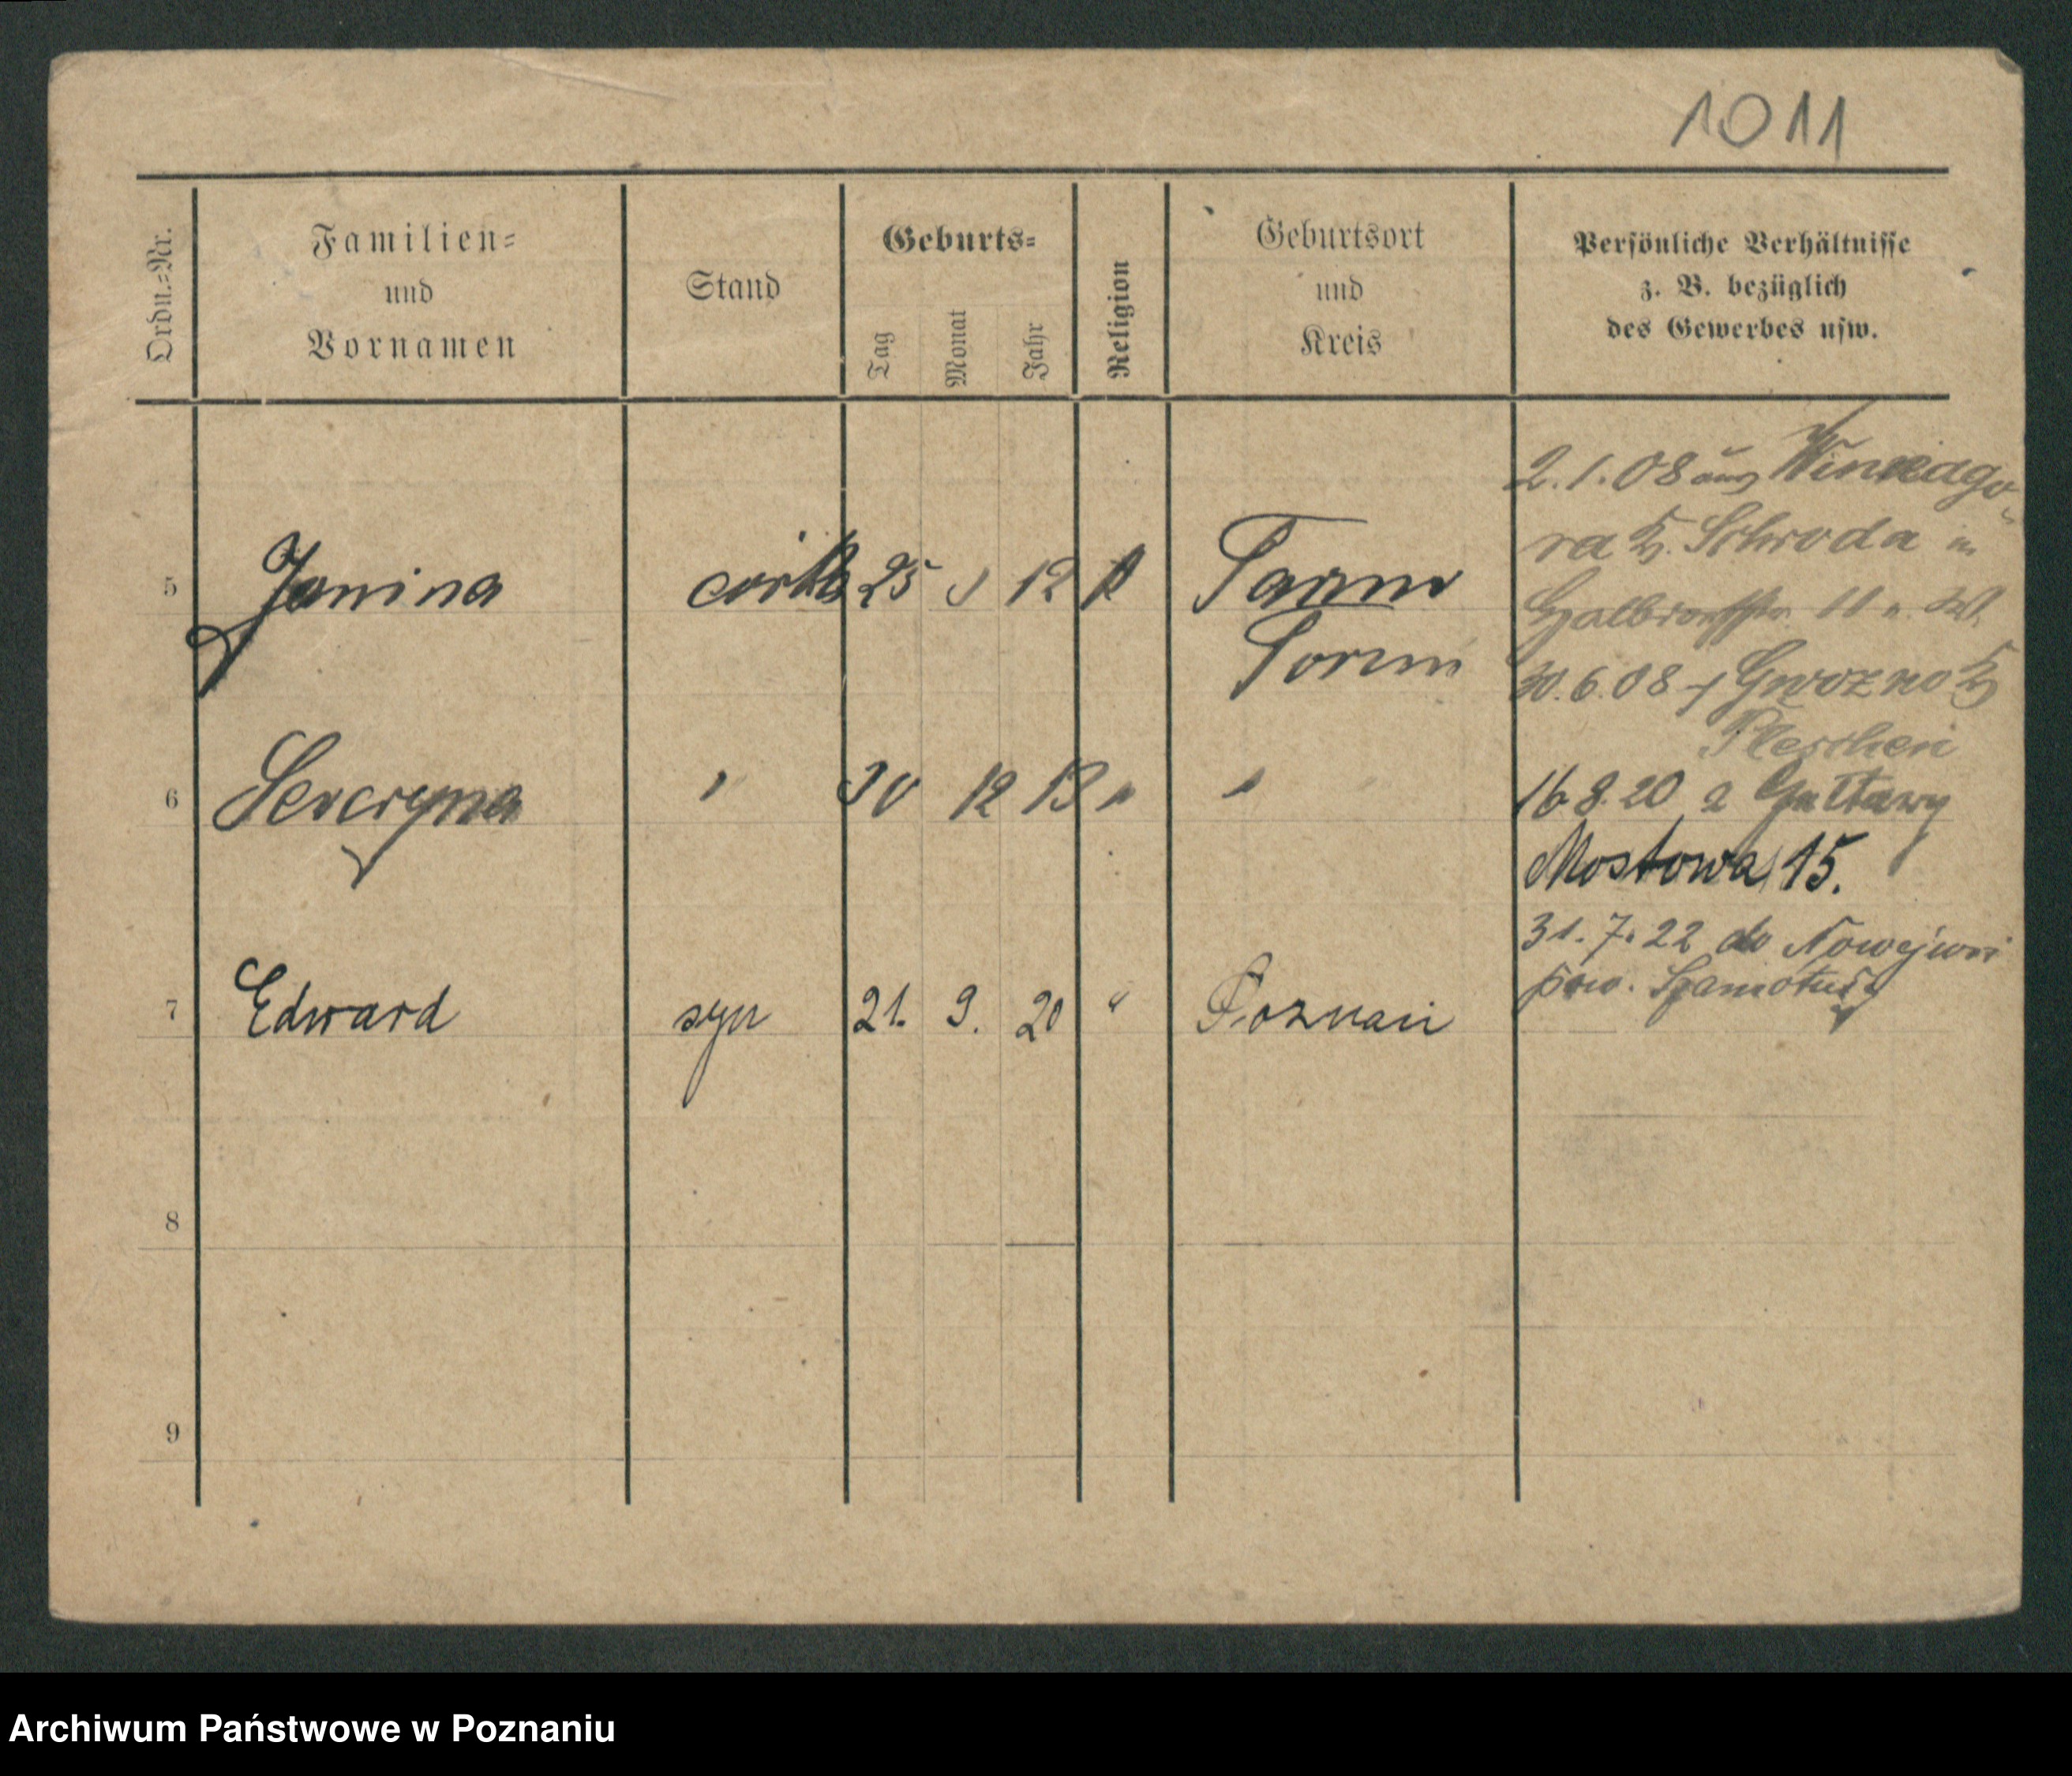 1011
Ordn.=Nr.
Familien=
und
Vornamen
Stand
Geburts=
Tag
Monat
Jahr
Religion
Geburtsort
und
Kreis
Persönliche Verhältnisse
z. B. bezüglich
des Gewerbes usw.
2.1.08 aus Winnago-
ra Kr. Schroda in
11
5 Janina córka 25 12 k
30.6.08 Gwozno Kr
Pleschen
6 Seweryna " 30 12 13 " "
16.8.20 z Gułtowy
Mostowa 15.
31.7.22 do Nowejwsi
pow. Szamotuły
7 Edward syn 21. 9. 20 " Poznań
8
9
Archiwum Państwowe w Poznaniu